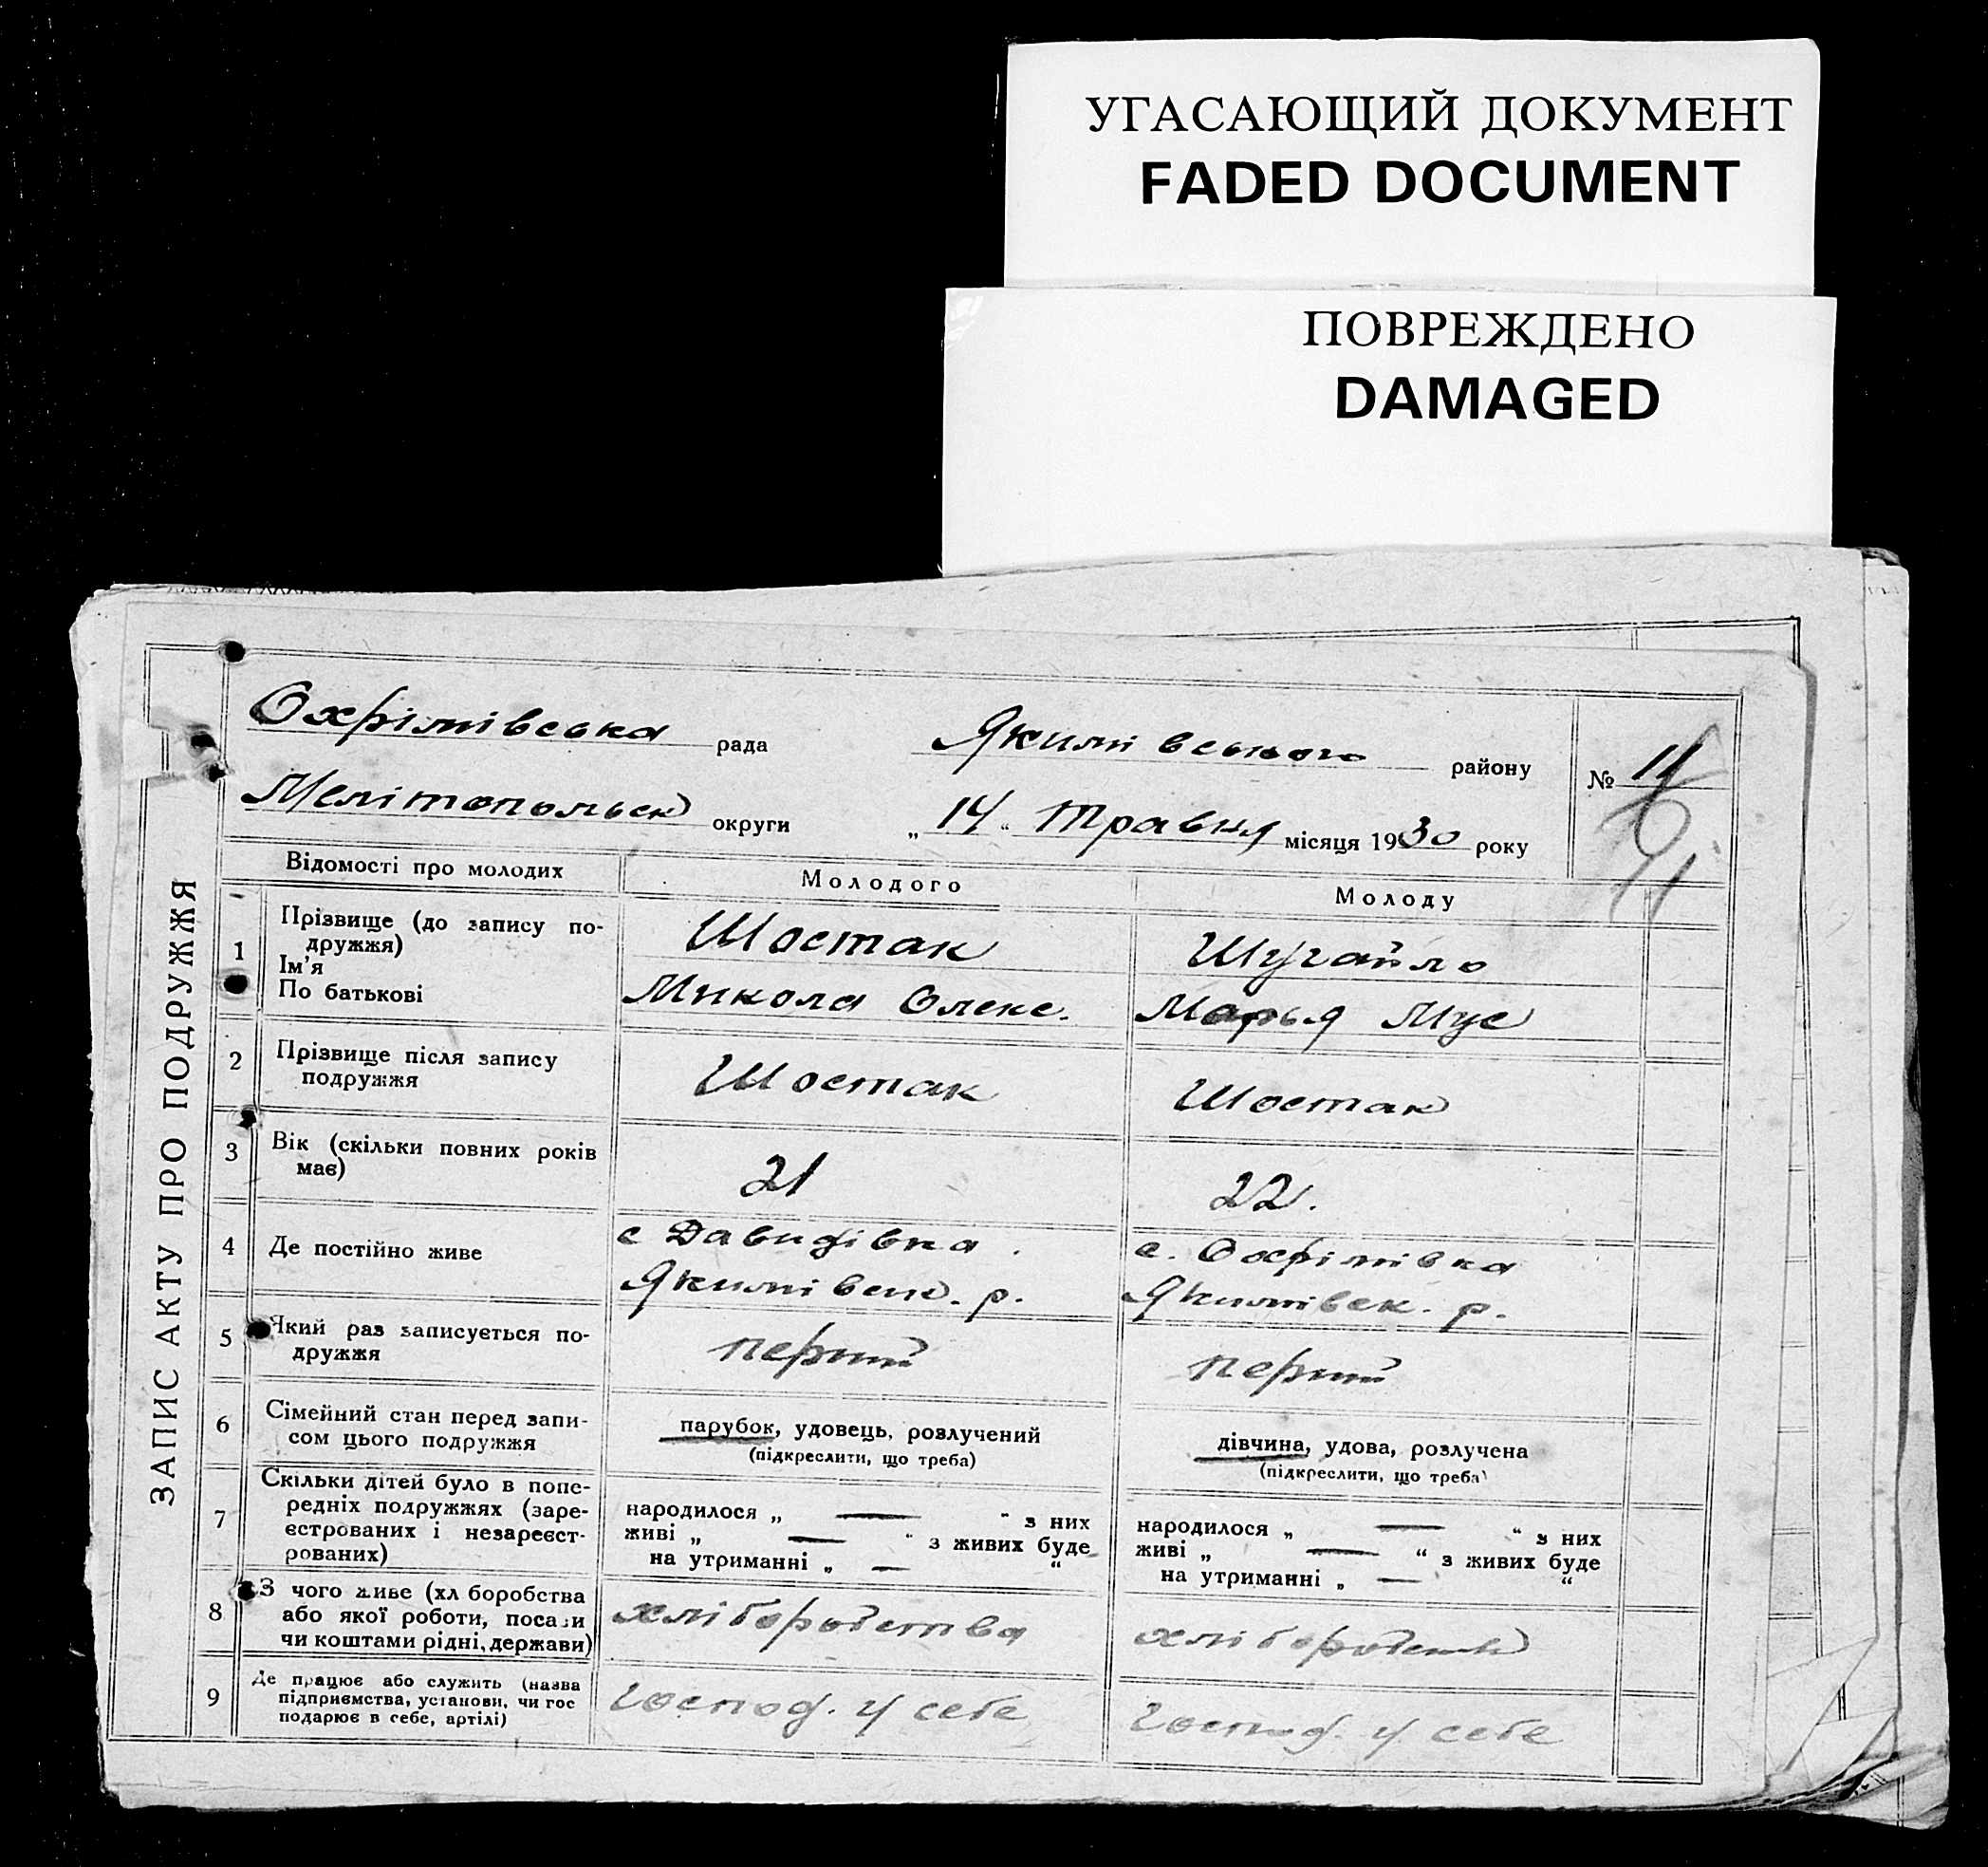 УГАСАЮЩИЙ ДОКУМЕНТ
FADED DOCUMENT
ПОВРЕЖДЕНО
DAMAGED
ЗАПИС АКТУ ПРО ПОДРУЖЖЯ
Охрімівська рада Якимівського району № 11
Мелітопольск округи „ 14 “ Травня місяця 1930 року
Відомості про молодих Молодого Молоду
1 Прізвище (до запису по-
дружжя) Шостак Шугайло
Ім'я
По батькові Микола Олекс. Марья Мус
2 Прізвище після запису
подружжя Шостак Шостак
3 Вік (скільки повних років
має) 21 22.
4 Де постійно живе с Давидівка. с. Охрімівка
Якимівськ. р. Якимівск. р.
5 Який раз записується по-
дружжя перший перший
6 Сімейний стан перед запи-
сом цього подружжя парубок, удовець, розлучений дівчина, удова, розлучена
(підкреслити, що треба) (підкреслити, що треба)
7 Скільки дітей було в попе-
редніх подружжях (заре-
єстрованих і незареєст-
рованих) народилося „ — “ з них народилося „ — “ з них
живі „ — “ з живих буде живі „ — “ з живих буде
на утриманні „ — “ на утриманні „ — “
8 З чого живе (хл боробства
або якої роботи, посади
чи коштами рідні, держави) хліборобства хліборобств
9 Де працює або служить (назва
підприємства, установи, чи гос
подарює в себе, артілі) господ. у себе господ. у себе